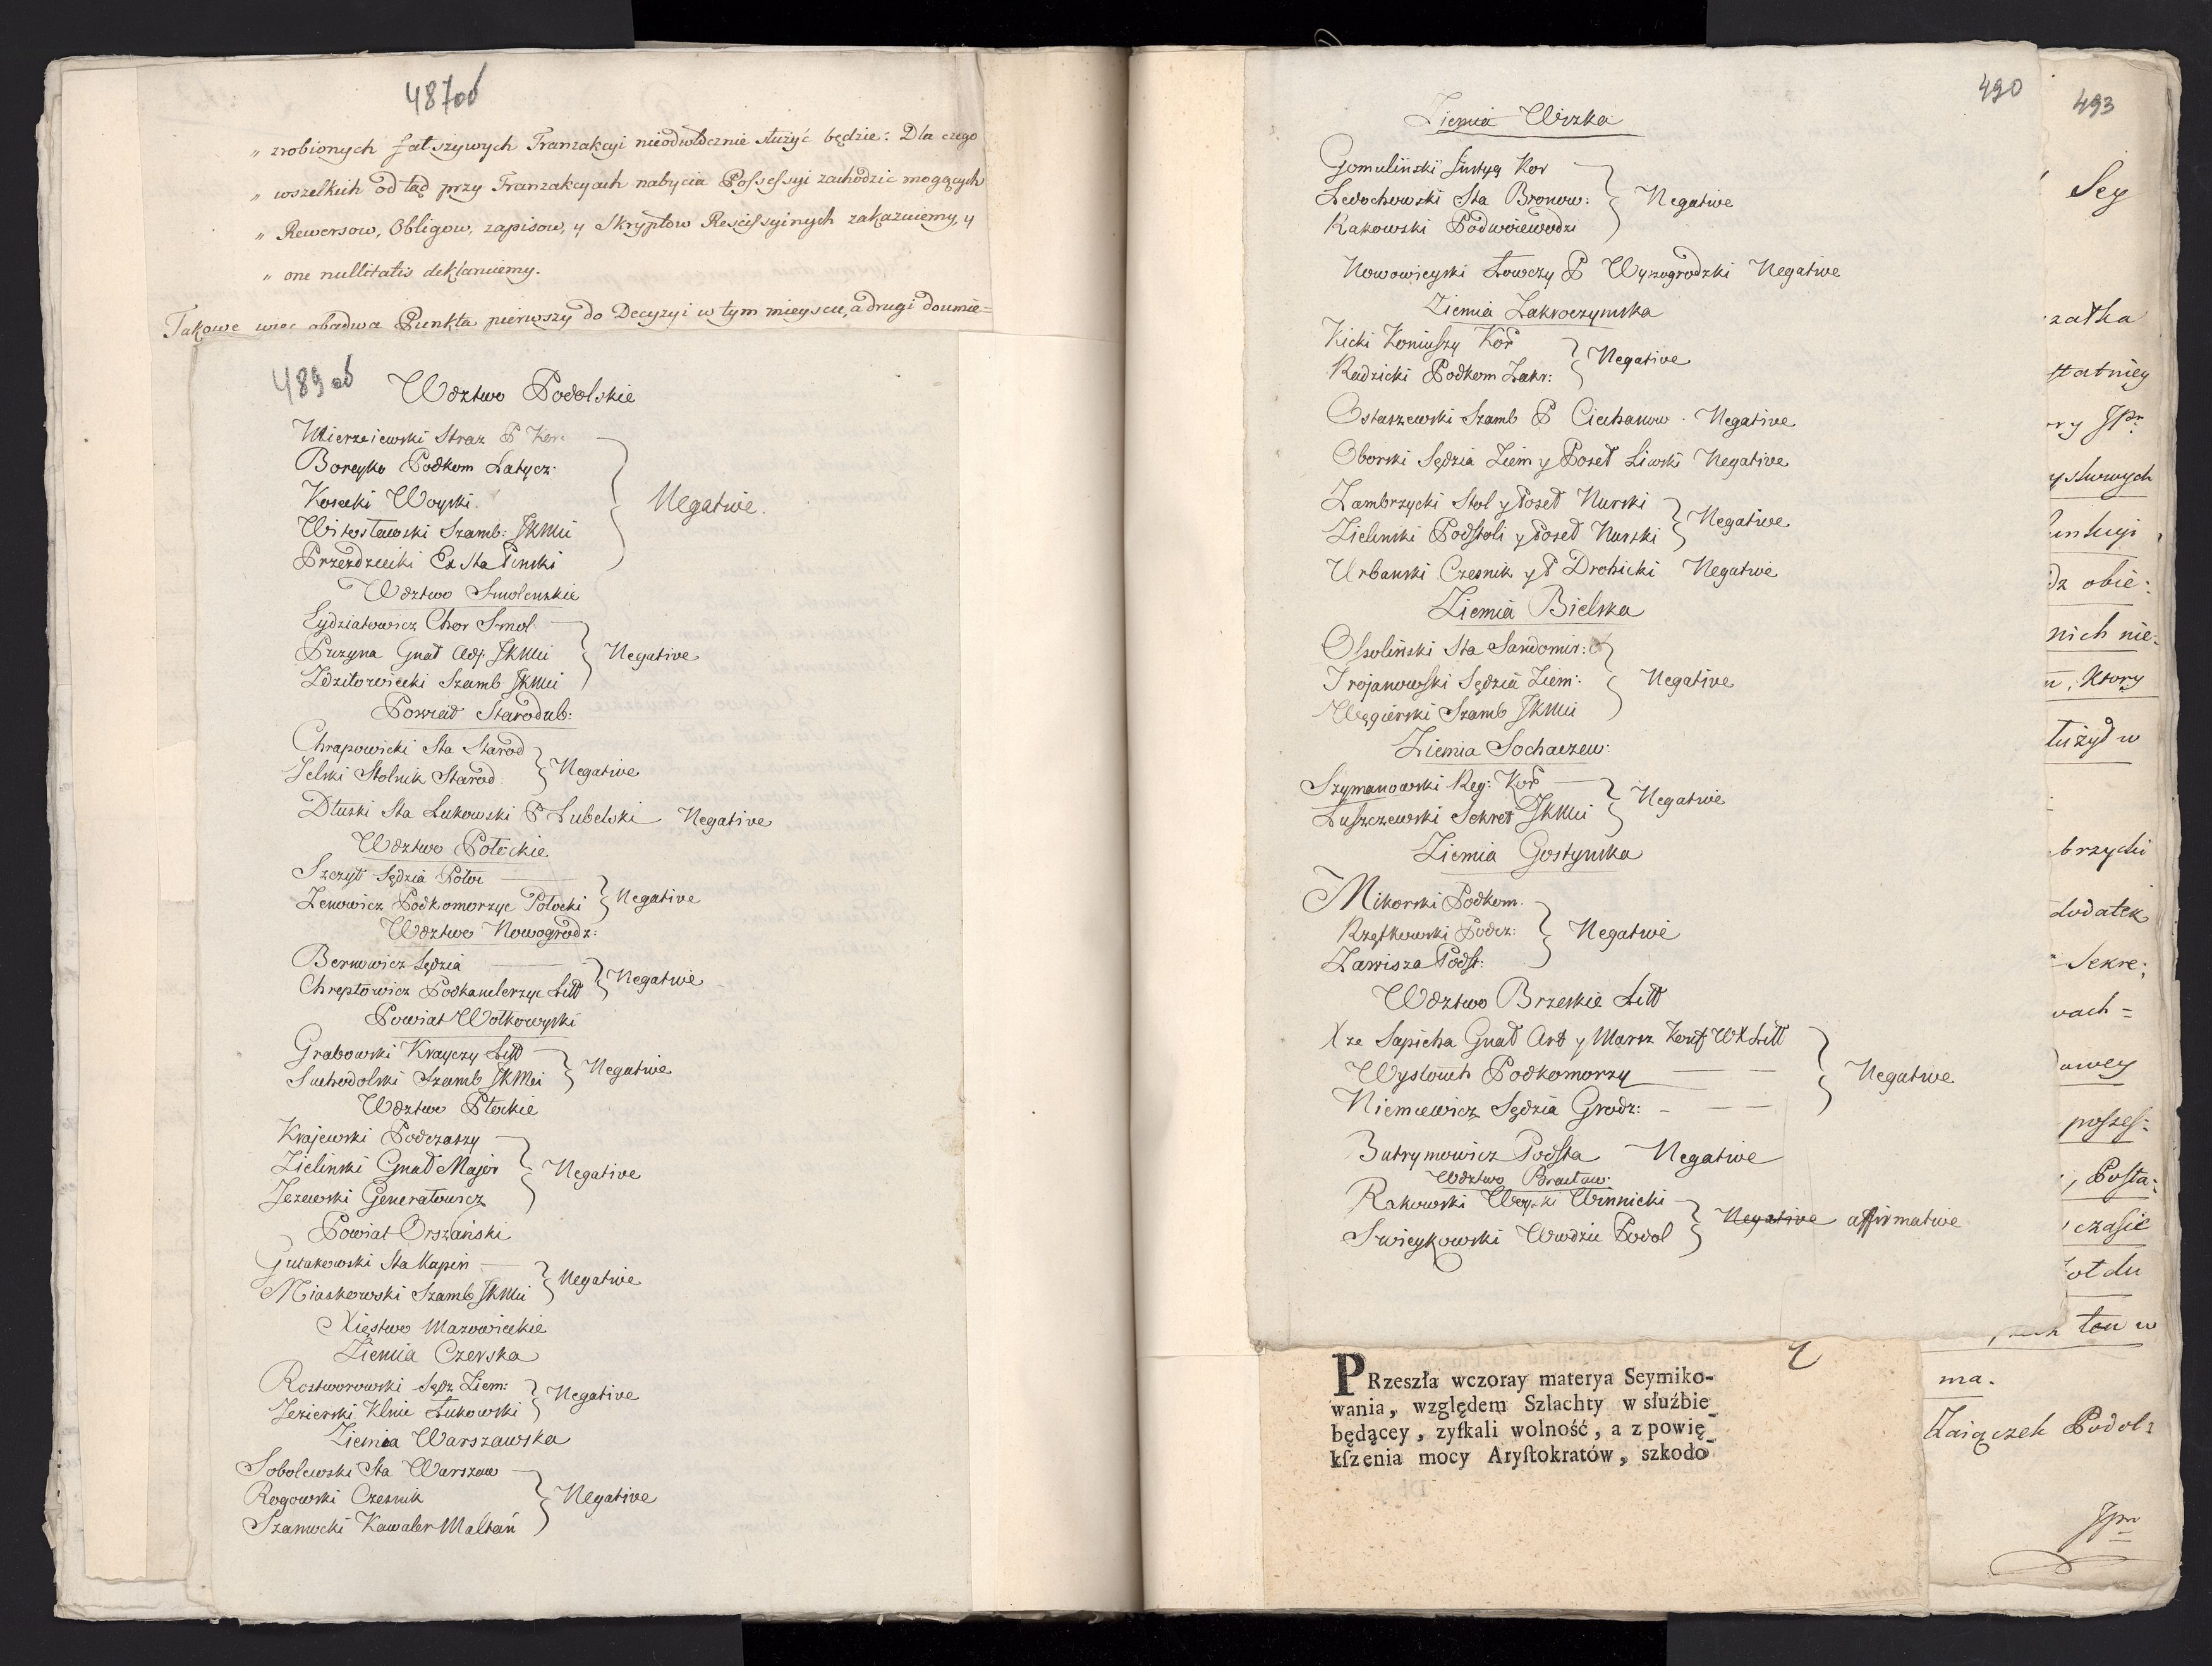 487об
„ zrobionych fałszywych Tranzakcyi nieodwłocznie służyć będzie: Dla czego
„ wszelkich od tąd przy Tranzakcyach nabycia Possessyi zachodzic mogących
„ Rewersow, Obligow, zapisow, y Skryptow Rescissyinych zakazuiemy, y
„ one nullitatis deklaruiemy.
Takowe więc obadwa Punkta pierwszy do Decyzyi w tym mieyscu, a drugi doumie=
489об
Wdztwo Podolskie
Mierzeiewski Straz P Kor.
Boreyko Podkom Latycz:
Kossecki Woyski
Witosławski Szamb: JKMci
Przezdziecki Ex Sta Pinski
Negative.
Wdztwo Smolenskie
Eydziatowicz Chor Smol.
Puzyna Gnał Adj. JKMci
Zdzitowiecki Szamb JKMci
Negative
Powiat Starodub:
Chrapowicki Sta Starod
Jelski Stolnik Starod.
Negative
Dłuski Sta Lukowski P Lubelski Negative
Wdztwo Połockie
Szczyt Sędzia Połoc
Zenowicz Podkomorzyc Połocki
Negative
Wdztwo Nowogrodz:
Bernowicz Sędzia
Chreptowicz Podkanclerzyc Litt
Negative
Powiat Wołkowyski
Grabowski Krayczy Litt
Suchodolski Szamb JKMci
Negative
Wdztwo Płockie
Krajewski Podczaszy
Zielinski Gnał Major
Jezewski Generałowicz
Negative
Powiat Orszański
Gutakowski Sta Kapin
Miaskowski Szamb JKMci
Negative
Xięstwo Mazowieckie
Ziemia Czerska
Rostworowski Sędz Ziem:
Jezierski Klnic Łukowski
Negative
Ziemia Warszawska
Sobolewski Sta Warszaw
Rogowski Czesnik
Szamocki Kawaler Maltań
Negative
490
Ziemia Wizka
Gomuliński Instyg Kor
Ledochowski Sta Bronow:
Rakowski Podwoiewodzi
Negative
Nowowieyski Łowczy P Wyszogrodzki Negative
Ziemia Zakroczymska
Kicki Koniuszy Kor
Radzicki Podkom Zakr:
Negative
Ostaszewski Szamb P Ciechanow. Negative
Oborski Sędzia Ziem y Poseł Liwski Negative
Zambrzycki Stol y Poseł Nurski
Zielinski Podstoli y Poseł Nurski
Negative
Urbanski Czesnik y P Drohicki Negative
Ziemia Bielska
Ossoliński Sta Sandomir:
Trojanowski Sędzia Ziem:
Węgierski Szamb JKMci
Negative
Ziemia Sochaczew:
Szymanowski Reg: Kor
Łuszczewski Sekret JKMci
Negative
Ziemia Gostynska
Mikorski Podkom.
Rzątkowski Podcz:
Zawisza Podst:
Negative
Wdztwo Brzeskie Litt
Xze Sapieha Gnał Art y Marsz Konf WXLitt
Wysłouch Podkomorzy
Niemcewicz Sędzia Grodz:
Negative
Butrymowicz Podsta Negative
Wdztwo Bracław:
Rakowski Woyski Winnicki
Swieykowski Wwdzic Podol
Negative affirmative
PRzeszła wczoray materya Seymiko-
wania, względem Szlachty w służbie
będącey, zyſkali wolność, a z powię-
kſzenia mocy Aryſtokratów, szkodo
493
Sey
statniey
obie:
nich nie-
Ktory
brzycki
dodatek
Sekre:
vach=
possess:
Posta:
czasie
ten w
ma.
Zaiączek Podol: